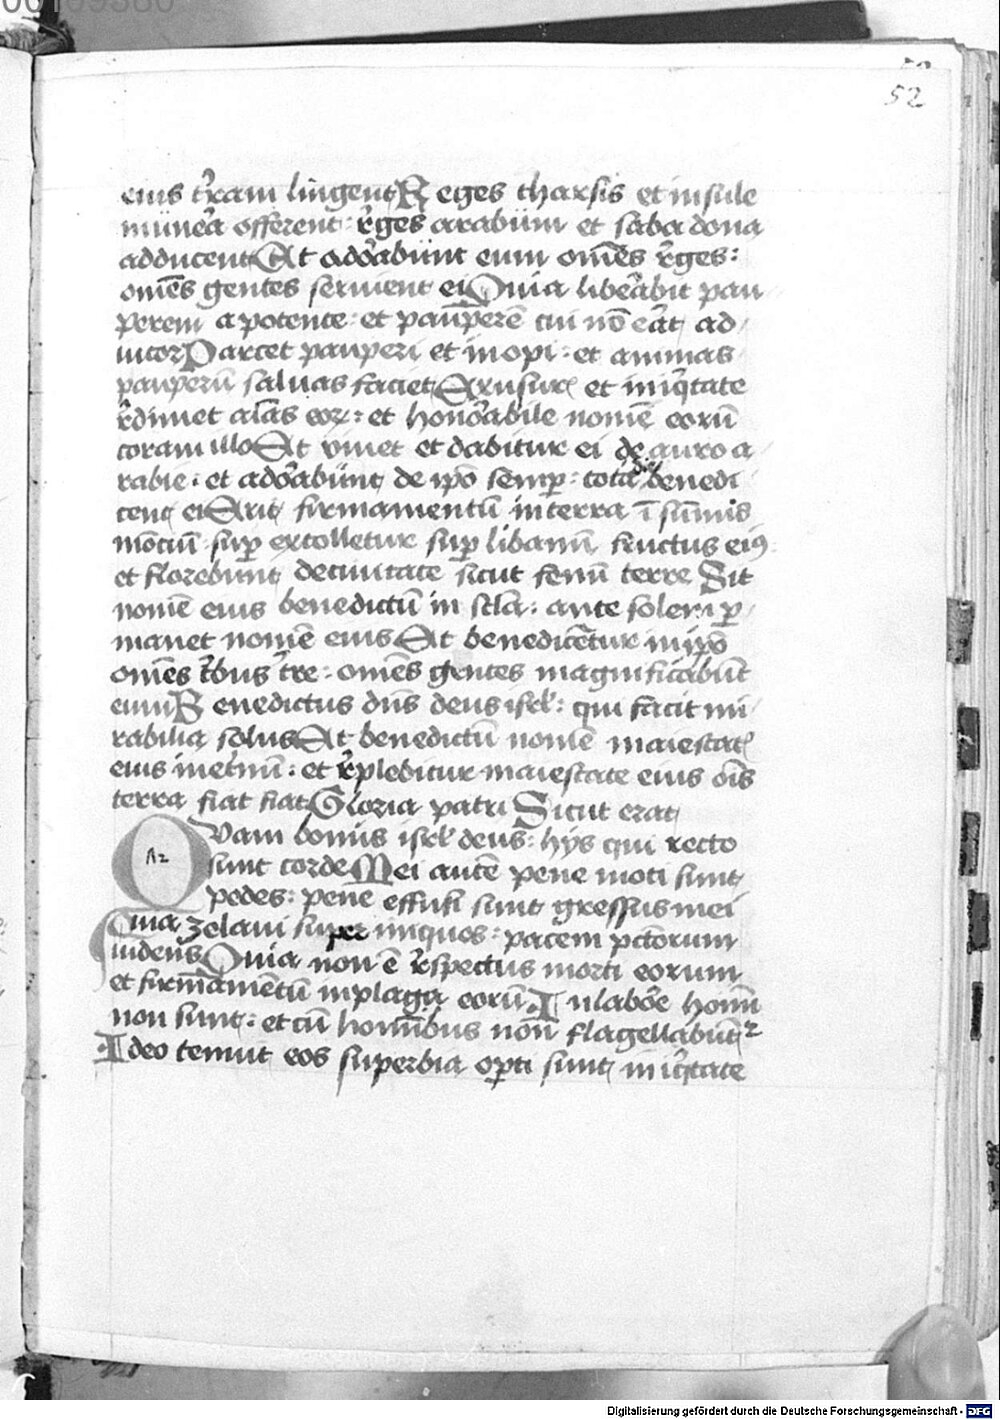 00109380
52
eius t͛ram lingent Reges tharsis et insule
mune͛a offerent: r͛ges arabum et saba dona
adducent Et ado͛abunt eum om̄es r͛ges:
om̄es gentes seruient ei Quia libe͛abit pau
perem a potente: et pauꝑerē cui nō e͛at ad
iutor Parcet pauperi et inopi: et animas
pauperū saluas faciet Ex usur et iniq͛tate
r͛dimet aīas eoꝝ: et hono͛abile nomē eorū
coram illo Et viuet et dabitur ei de auro a
rabie: et ado͛abunt de ip̄o semꝑ: tota die benedi
cent ei Erit firmamentū in terra ī sūmis
mōtiū: suꝑ extolletur suꝑ libanū fructus eiꝰ
et florebunt de ciuitate sicut fenū terre Sit
nomē eius benedictū in scl̄a: ante solem ꝑ
manet nomē eius Et benedicētur in ip̄o
om̄es t͛bus t͛re: om̄es gentes magnificabūt
eum Benedictus dn̄s deus isrl̄: qui facit mi
rabilia solus Et benedictū nomē maiestat͛
eius in et͛nū: et r͛plebitur maiestate eius oīs
terra fiat fiat Gloria patri Sicut erat
Quam bonus isrl̄ deus: hys qui recto
sunt corde Mei autē pene moti sunt
pedes: pene effusi sunt gressus mei
Quia zelaui super iniquos: pacem pctōrum
uidens Quia non ē r͛spectus morti eorum
et firmamentū in plaga eorū In labo͛e homīn
non sunt: et cū hominibus non flagellabūt᷑
Ideo tenuit eos superbia oꝑti sunt iniq͛tate
Digitalisierung gefördert durch die Deutsche Forschungsgemeinschaft - DFG